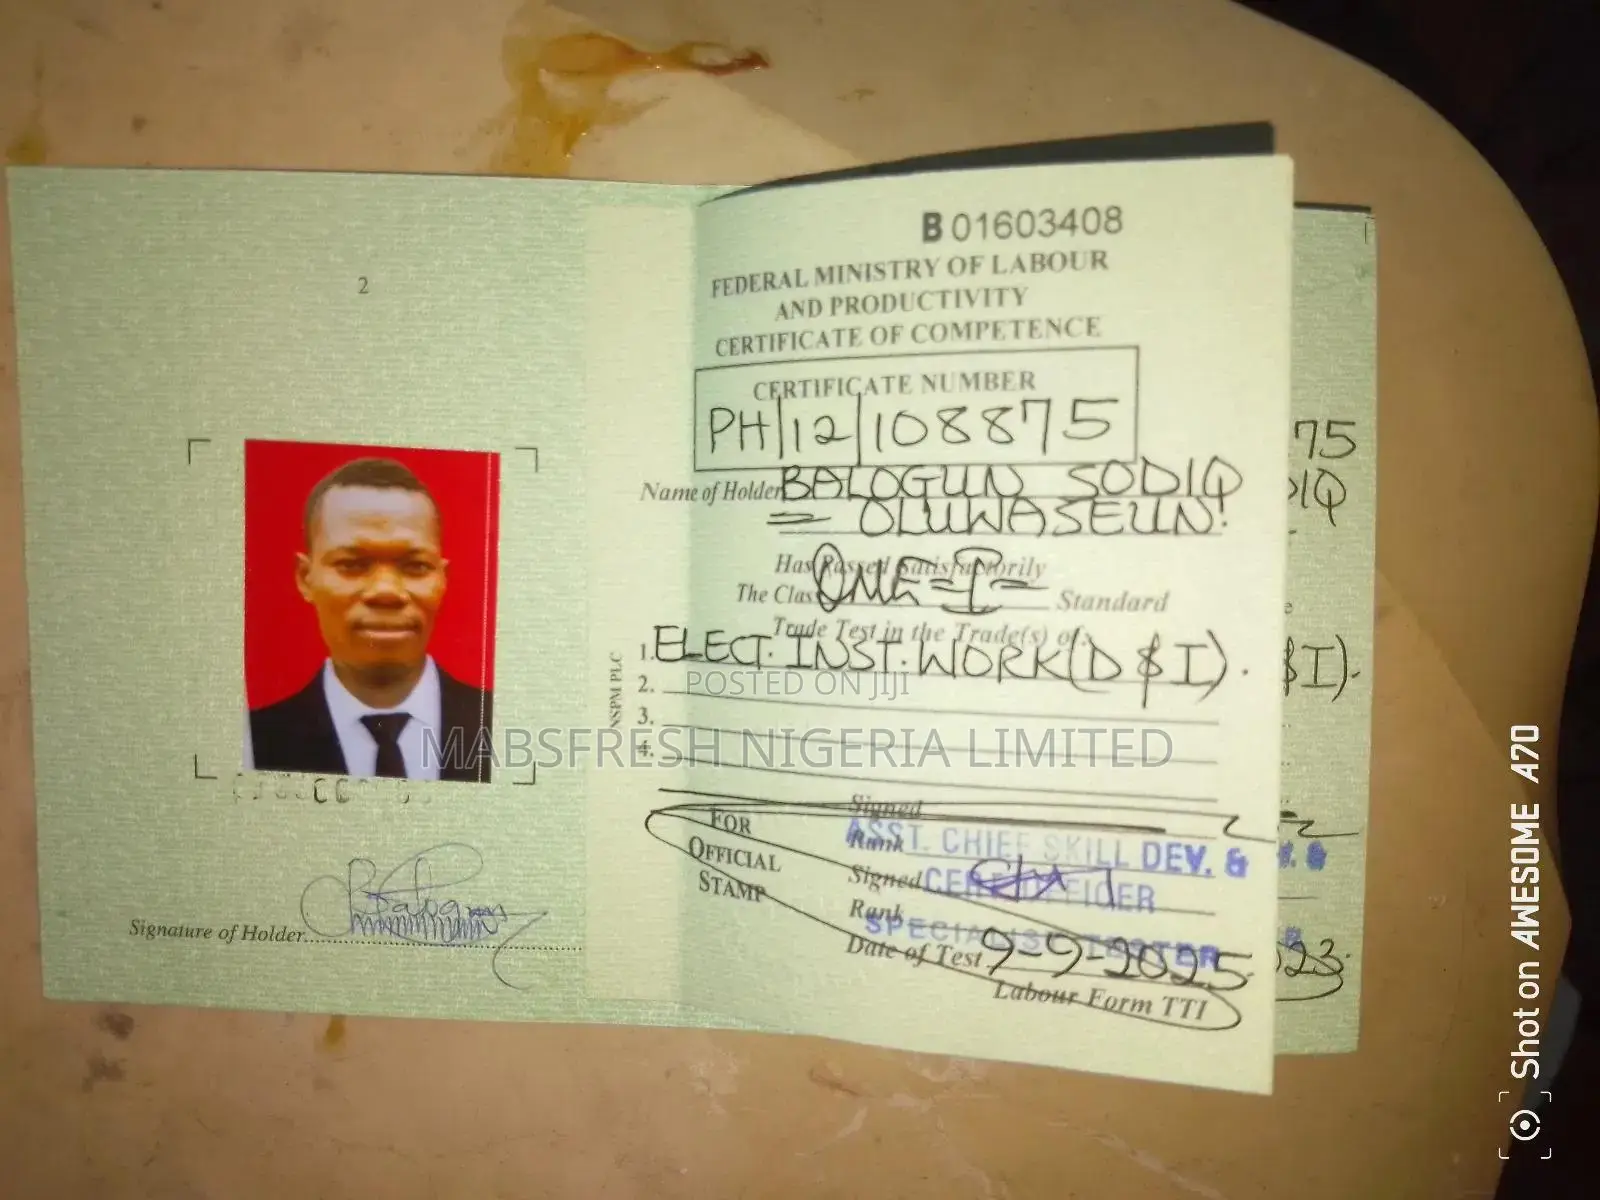 2
Signature of Holder
B 01603408
FEDERAL MINISTRY OF LABOUR
AND PRODUCTIVITY
CERTIFICATE OF COMPETENCE
CERTIFICATE NUMBER
PH/12/108875
Name of Holder BALOGUN SODIQ
= OLUWASEUN.
Has Passed Satisfactorily
The Class ONE=I= Standard
Trade Test in the Trade(s) of:
1. ELECT. INST. WORK (D & I).
2.
3.
4.
NSPM PLC
FOR
OFFICIAL
STAMP
Signed
Rank
ASST. CHIEF SKILL DEV. &
Signed
CERT. OFFICER
Rank
SPECIALIST TESTER
Date of Test 9-9-2025
Labour Form TTI
75
DIQ
& I).
023
POSTED ON JIJI
MABSFRESH NIGERIA LIMITED
Shot on AWESOME A70